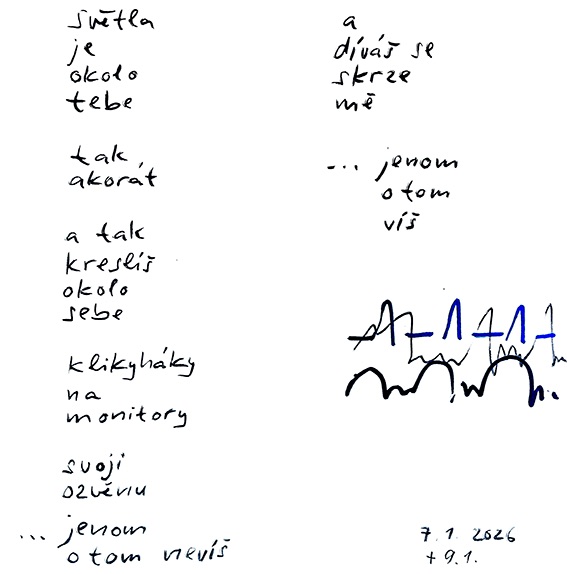 světla
je
okolo
tebe
tak
akorát
a tak
kreslíš
okolo
sebe
klikyháky
na
monitory
svoji
ozvěnu
... jenom
o tom nevíš
a
díváš se
skrze
mě
... jenom
o tom
víš
7. 1. 2026
+ 9.1.